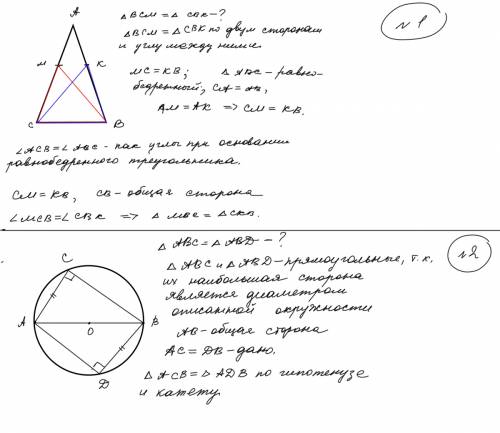 △ BCM = △ CBK - ?
△ BCM = △ CBK по двум сторонам
и углу между ними.
№ 1
A
M
K
C
B
MC = KB; △ ABC - равно-
бедренный, CA = AB,
AM = AK => CM = KB.
∠ACB = ∠ABC - как углы при основании
равнобедренного треугольника.
CM = KB, CB - общая сторона
∠MCB = ∠CBK => △ MBC = △ CKB.
△ ABC = △ ABD - ?
№2
△ ABC и △ ABD - прямоугольные, т.к.
их наибольшая сторона
является диаметром
описанной окружности
C
A
O
B
D
AB - общая сторона
AC = DB - дано.
△ ACB = △ ADB по гипотенузе
и катету.